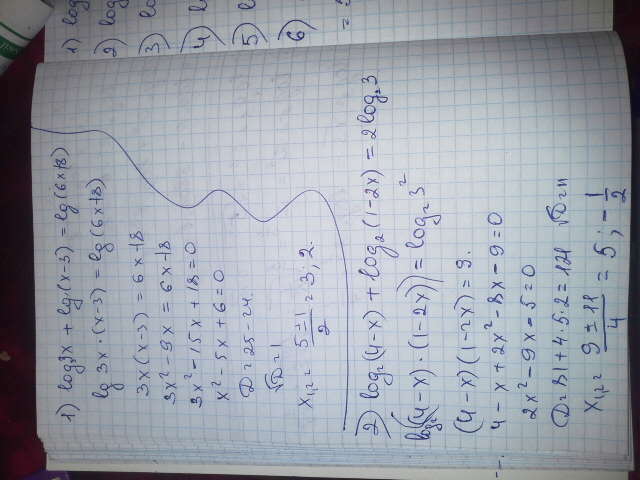 1) log 3x + lg (x-3) = lg (6x-18)
lg 3x · (x-3) = lg (6x-18)
3x (x-3) = 6x-18
3x² - 9x = 6x-18
3x² - 15x + 18 = 0
x² - 5x + 6 = 0
D = 25 - 24.
√D = 1
x₁,₂ = (5 ± 1)/2 = 3; 2.
2) log₂ (4-x) + log₂ (1-2x) = 2log₂ 3
log₂((4-x) · (1-2x)) = log₂ 3²
(4-x)(1-2x) = 9.
4 - x + 2x² - 8x - 9 = 0
2x² - 9x - 5 = 0
D = 81 + 4·5·2 = 121 √D = 11
x₁,₂ = (9 ± 11)/4 = 5; -1/2
1) log
2) log
3) lo
4) l
5) l
6)
=